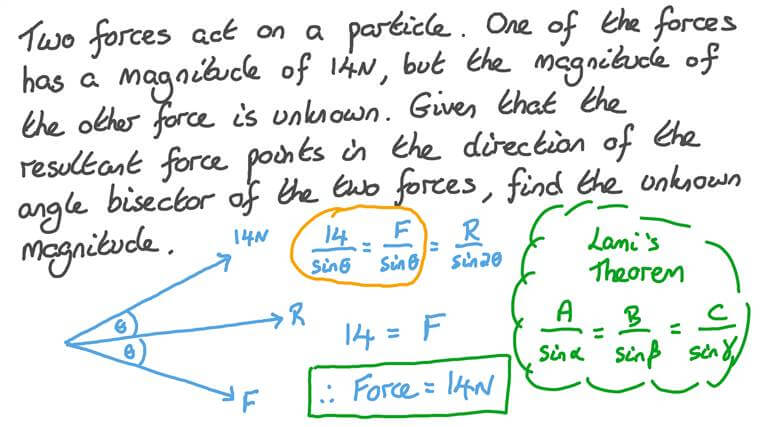 Two forces act on a particle. One of the forces
has a magnitude of 14N, but the magnitude of
the other force is unknown. Given that the
resultant force points in the direction of the
angle bisector of the two forces, find the unknown
magnitude.
14N
θ
θ
R
F
14/sinθ = F/sinθ = R/sin2θ
14 = F
∴ Force = 14N
Lami's
Theorem
A/sinα = B/sinβ = C/sinγ